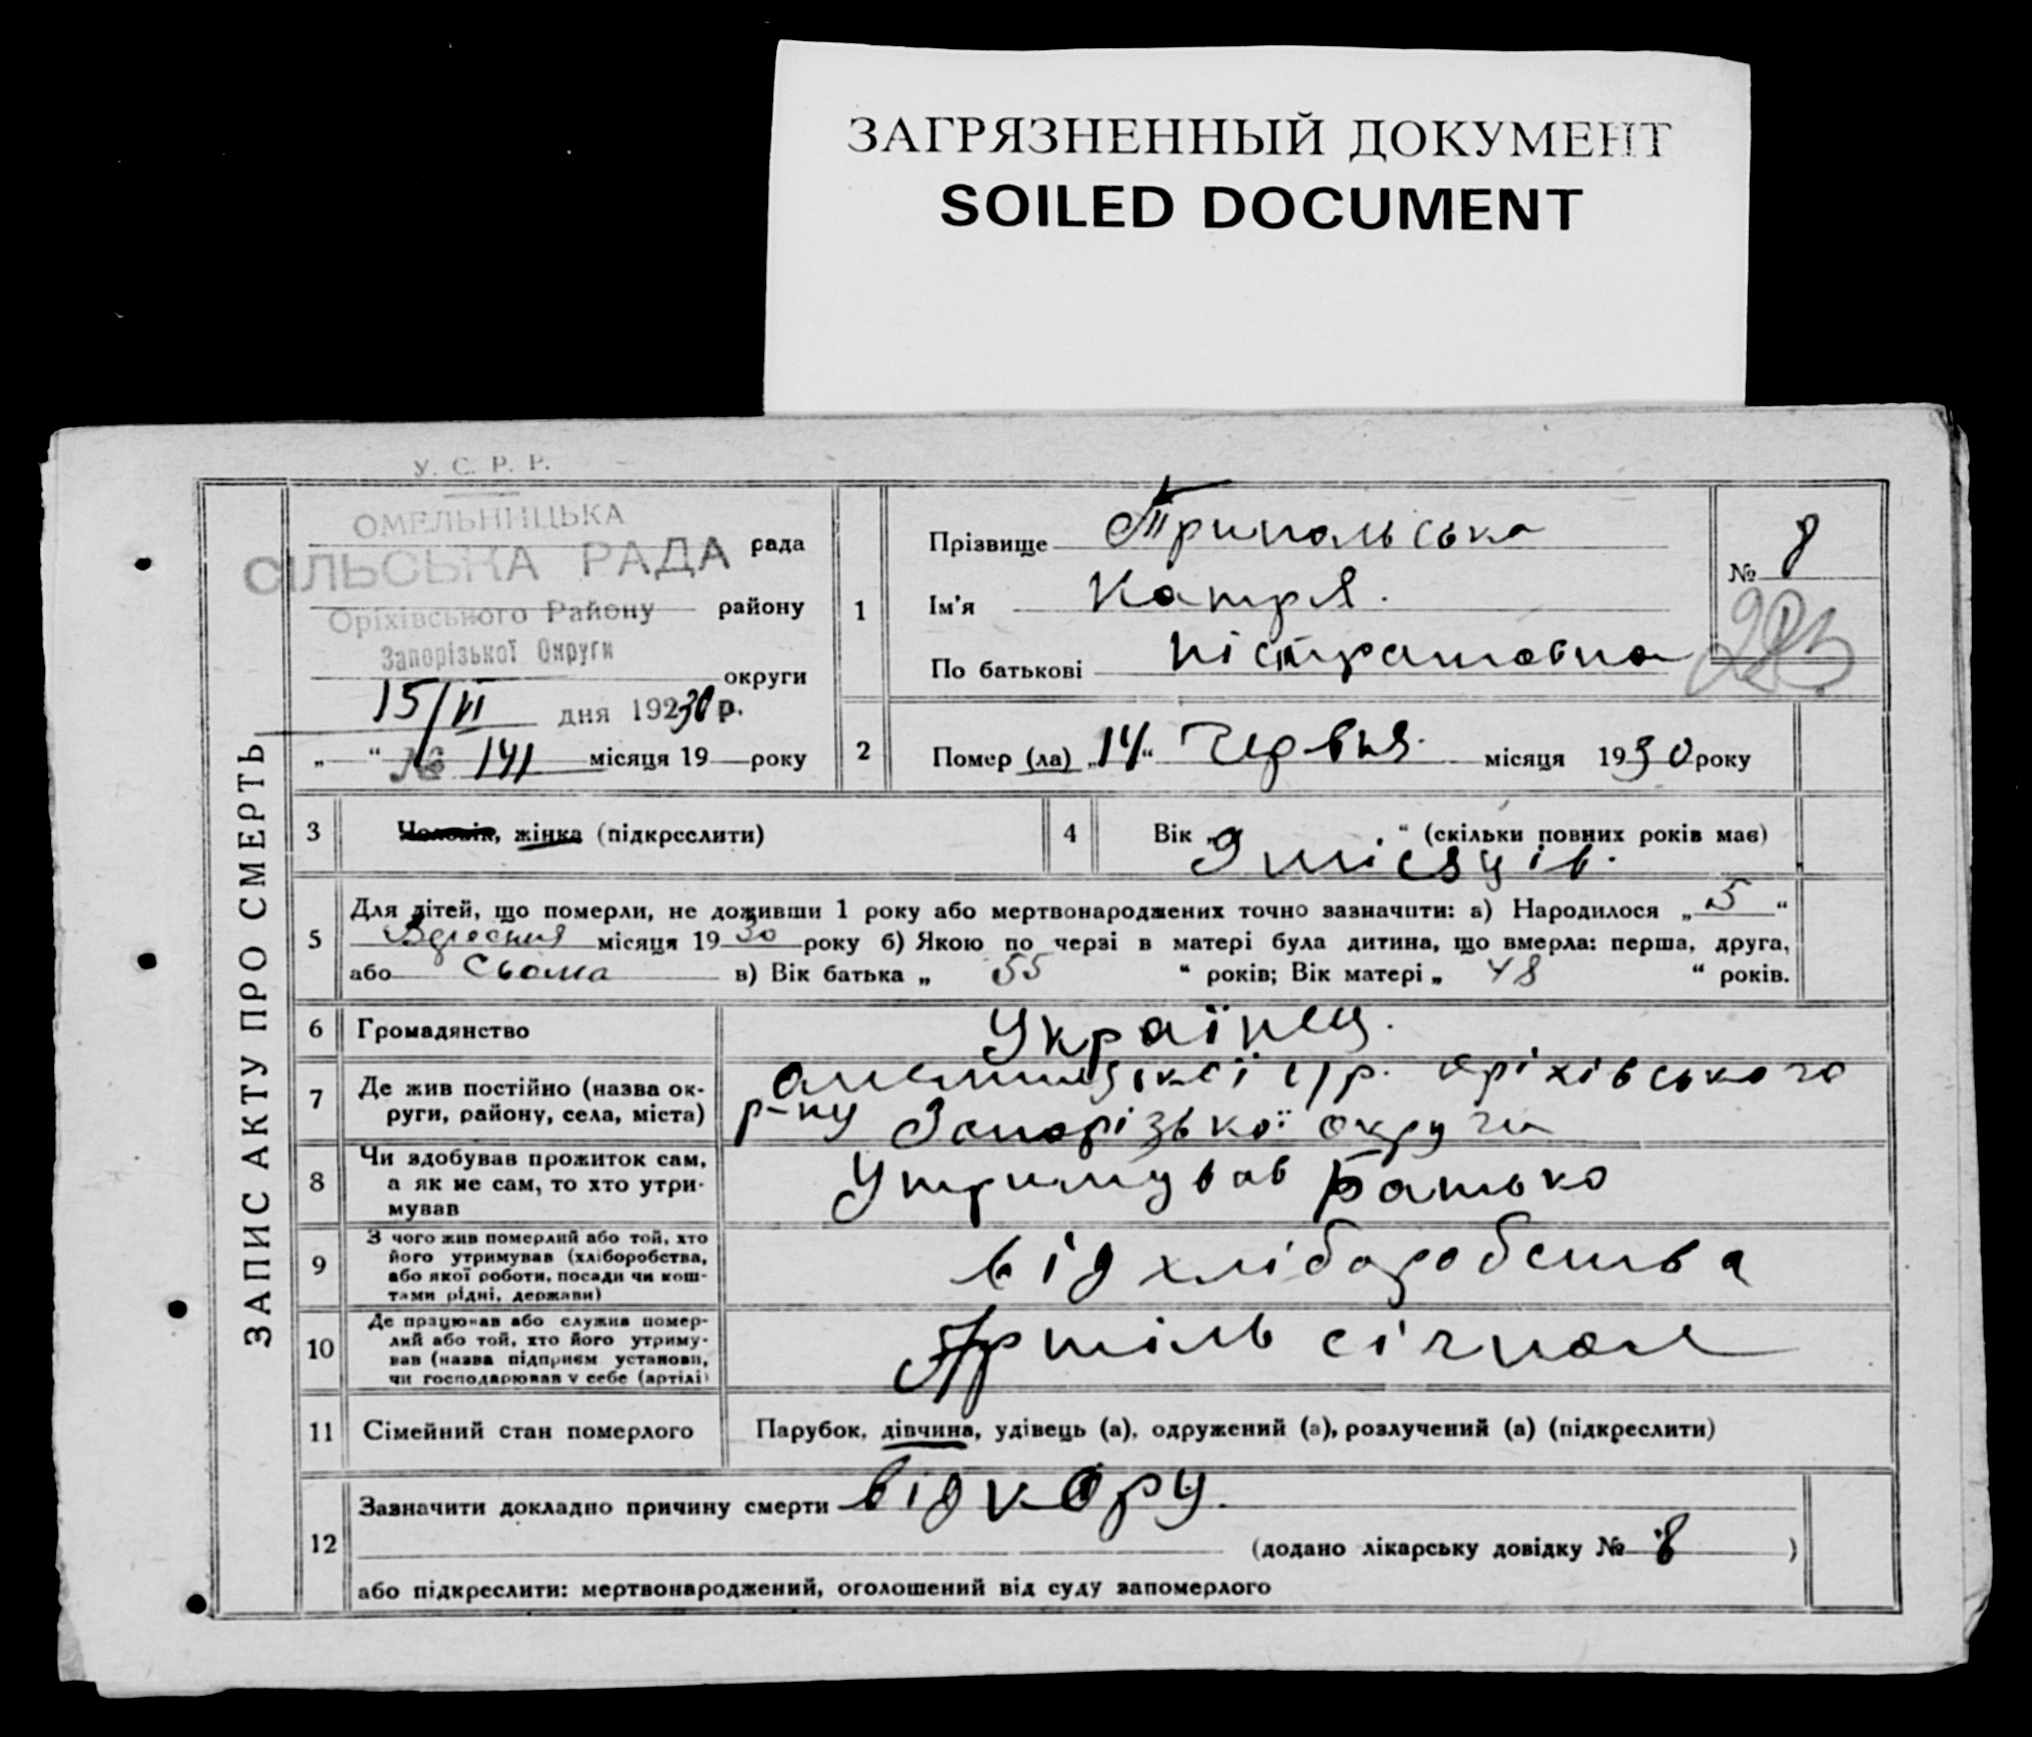 ЗАГРЯЗНЕННЫЙ ДОКУМЕНТ
SOILED DOCUMENT
У. С. Р. Р.
ОМЕЛЬНИЦЬКА
СІЛЬСЬКА РАДА рада
Оріхівського Району району
Запорізької Округи
округи
15/VI дня 192 30 р.
„ “ № 141 місяця 19 року
ЗАПИС АКТУ ПРО СМЕРТЬ
1
Прізвище Трипольська
Ім'я Катря.
По батькові
№ 8
2 Помер (ла) „14“ Червня. місяця 1930 року
3 Чоловік, жінка (підкреслити)
4 Вік „ “ (скільки повних років має)
9 місяців.
5 Для дітей, що померли, не доживши 1 року або мертвонароджених точно зазначити: а) Народилося „5“
Вересня місяця 19 30 року б) Якою по черзі в матері була дитина, що вмерла: перша, друга,
або сьома в) Вік батька „ 55 “ років; Вік матері „ 48 “ років.
6 Громадянство Українец.
7 Де жив постійно (назва округи, району, села, міста) с/р. оріхівського
р-ну Запорізької округи
8 Чи здобував прожиток сам,
а як не сам, то хто утри-
мував Утримував батько
9 З чого жив померлий або той, хто
його утримував (хліборобства,
або якої роботи, посади чи кош-
тами рідні, держави) від хліборобства
10 Де працював або служив помер-
лий або той, хто його утриму-
вав (назва підприєм установи,
чи господарював у себе (артілі) Артіль
11 Сімейний стан померлого Парубок, дівчина, удівець (а), одружений (а), розлучений (а) (підкреслити)
12
Зазначити докладно причину смерти від кору.
(додано лікарську довідку № 8 )
або підкреслити: мертвонароджений, оголошений від суду запомерлого